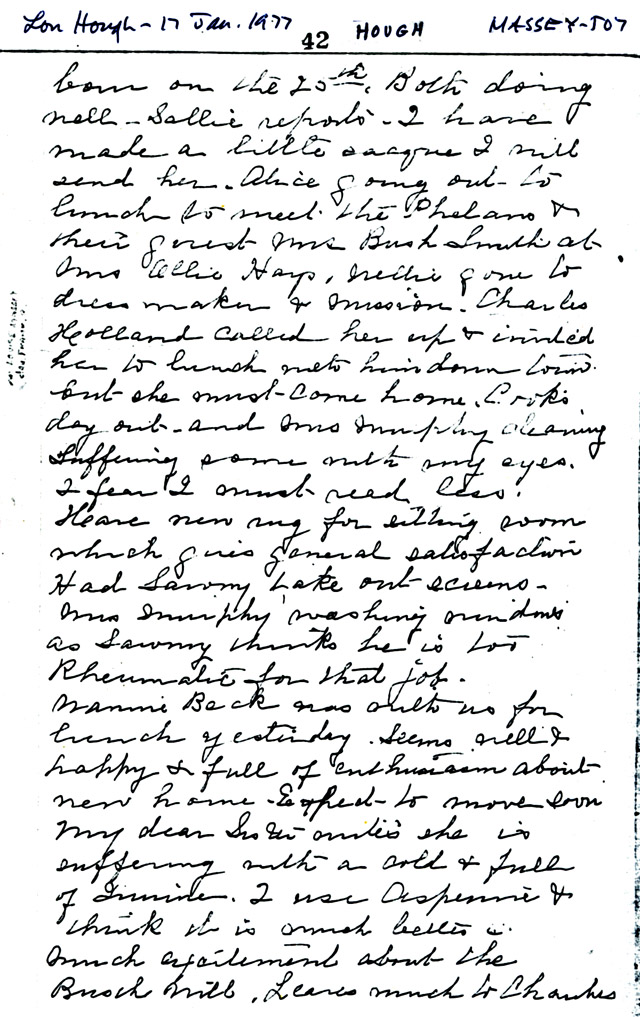 Lon Hough - 17 Jan. 1977 42 HOUGH MASSEY-507
born on the 25th. Both doing
well - Sallie reports - I have
made a little sacque I will
send her. Alice going out to
lunch to meet the Phelans &
their guest Mrs Bush Smith at
Mrs Ollie Hays, Nellie gone to
dress maker & mission. Charles
Holland called her up & invited
her to lunch with him down town
but she must come home. Cook's
day out - and Mrs Murphy cleaning
Suffering some with my eyes.
I fear I must read less.
Have new rug for sitting room
which gives general satisfaction
Had Sawny take out screens -
Mrs Murphy washing windows
as Sawny thinks he is too
Rheumatic for that job.
Nannie Beck was with us for
lunch yesterday. Seems well &
happy & full of enthusiasm about
new home - Exped - to move soon
My dear Sister writes she is
suffering with a cold & full
of Quinine. I use Asperine &
think it is much better
Much excitement about the
Busch Will. Leaves much to Charles